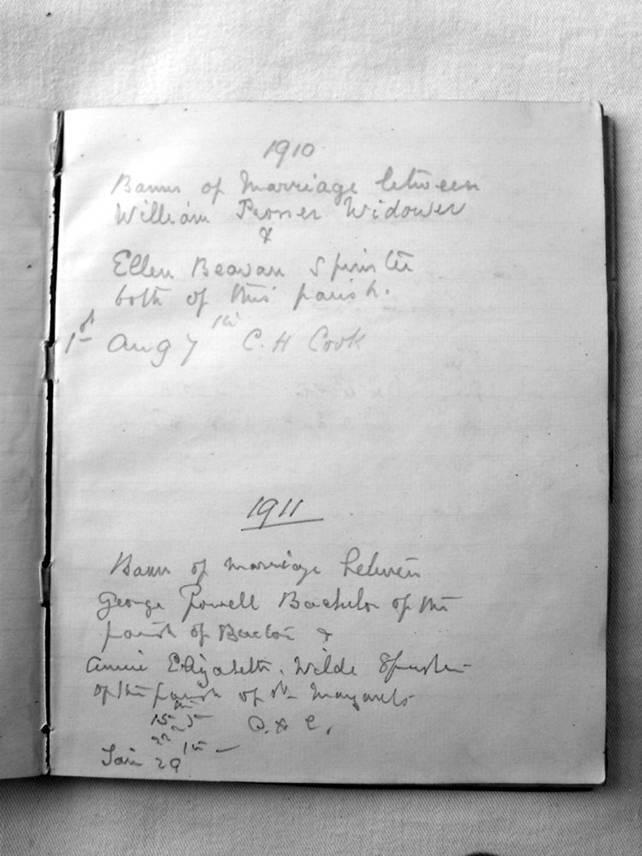 1910
Banns of Marriage between
William Prosser Widower
&
Ellen Beavan Spinster
both of this parish.
1st Aug 7th C. H Cook
1911
Banns of marriage between
George Powell Bachelor of the
parish of Bacton &
Annie Elizabeth Wilde Spinster
of the parish of St Margarets
15th C. H C.
22
Jan 29